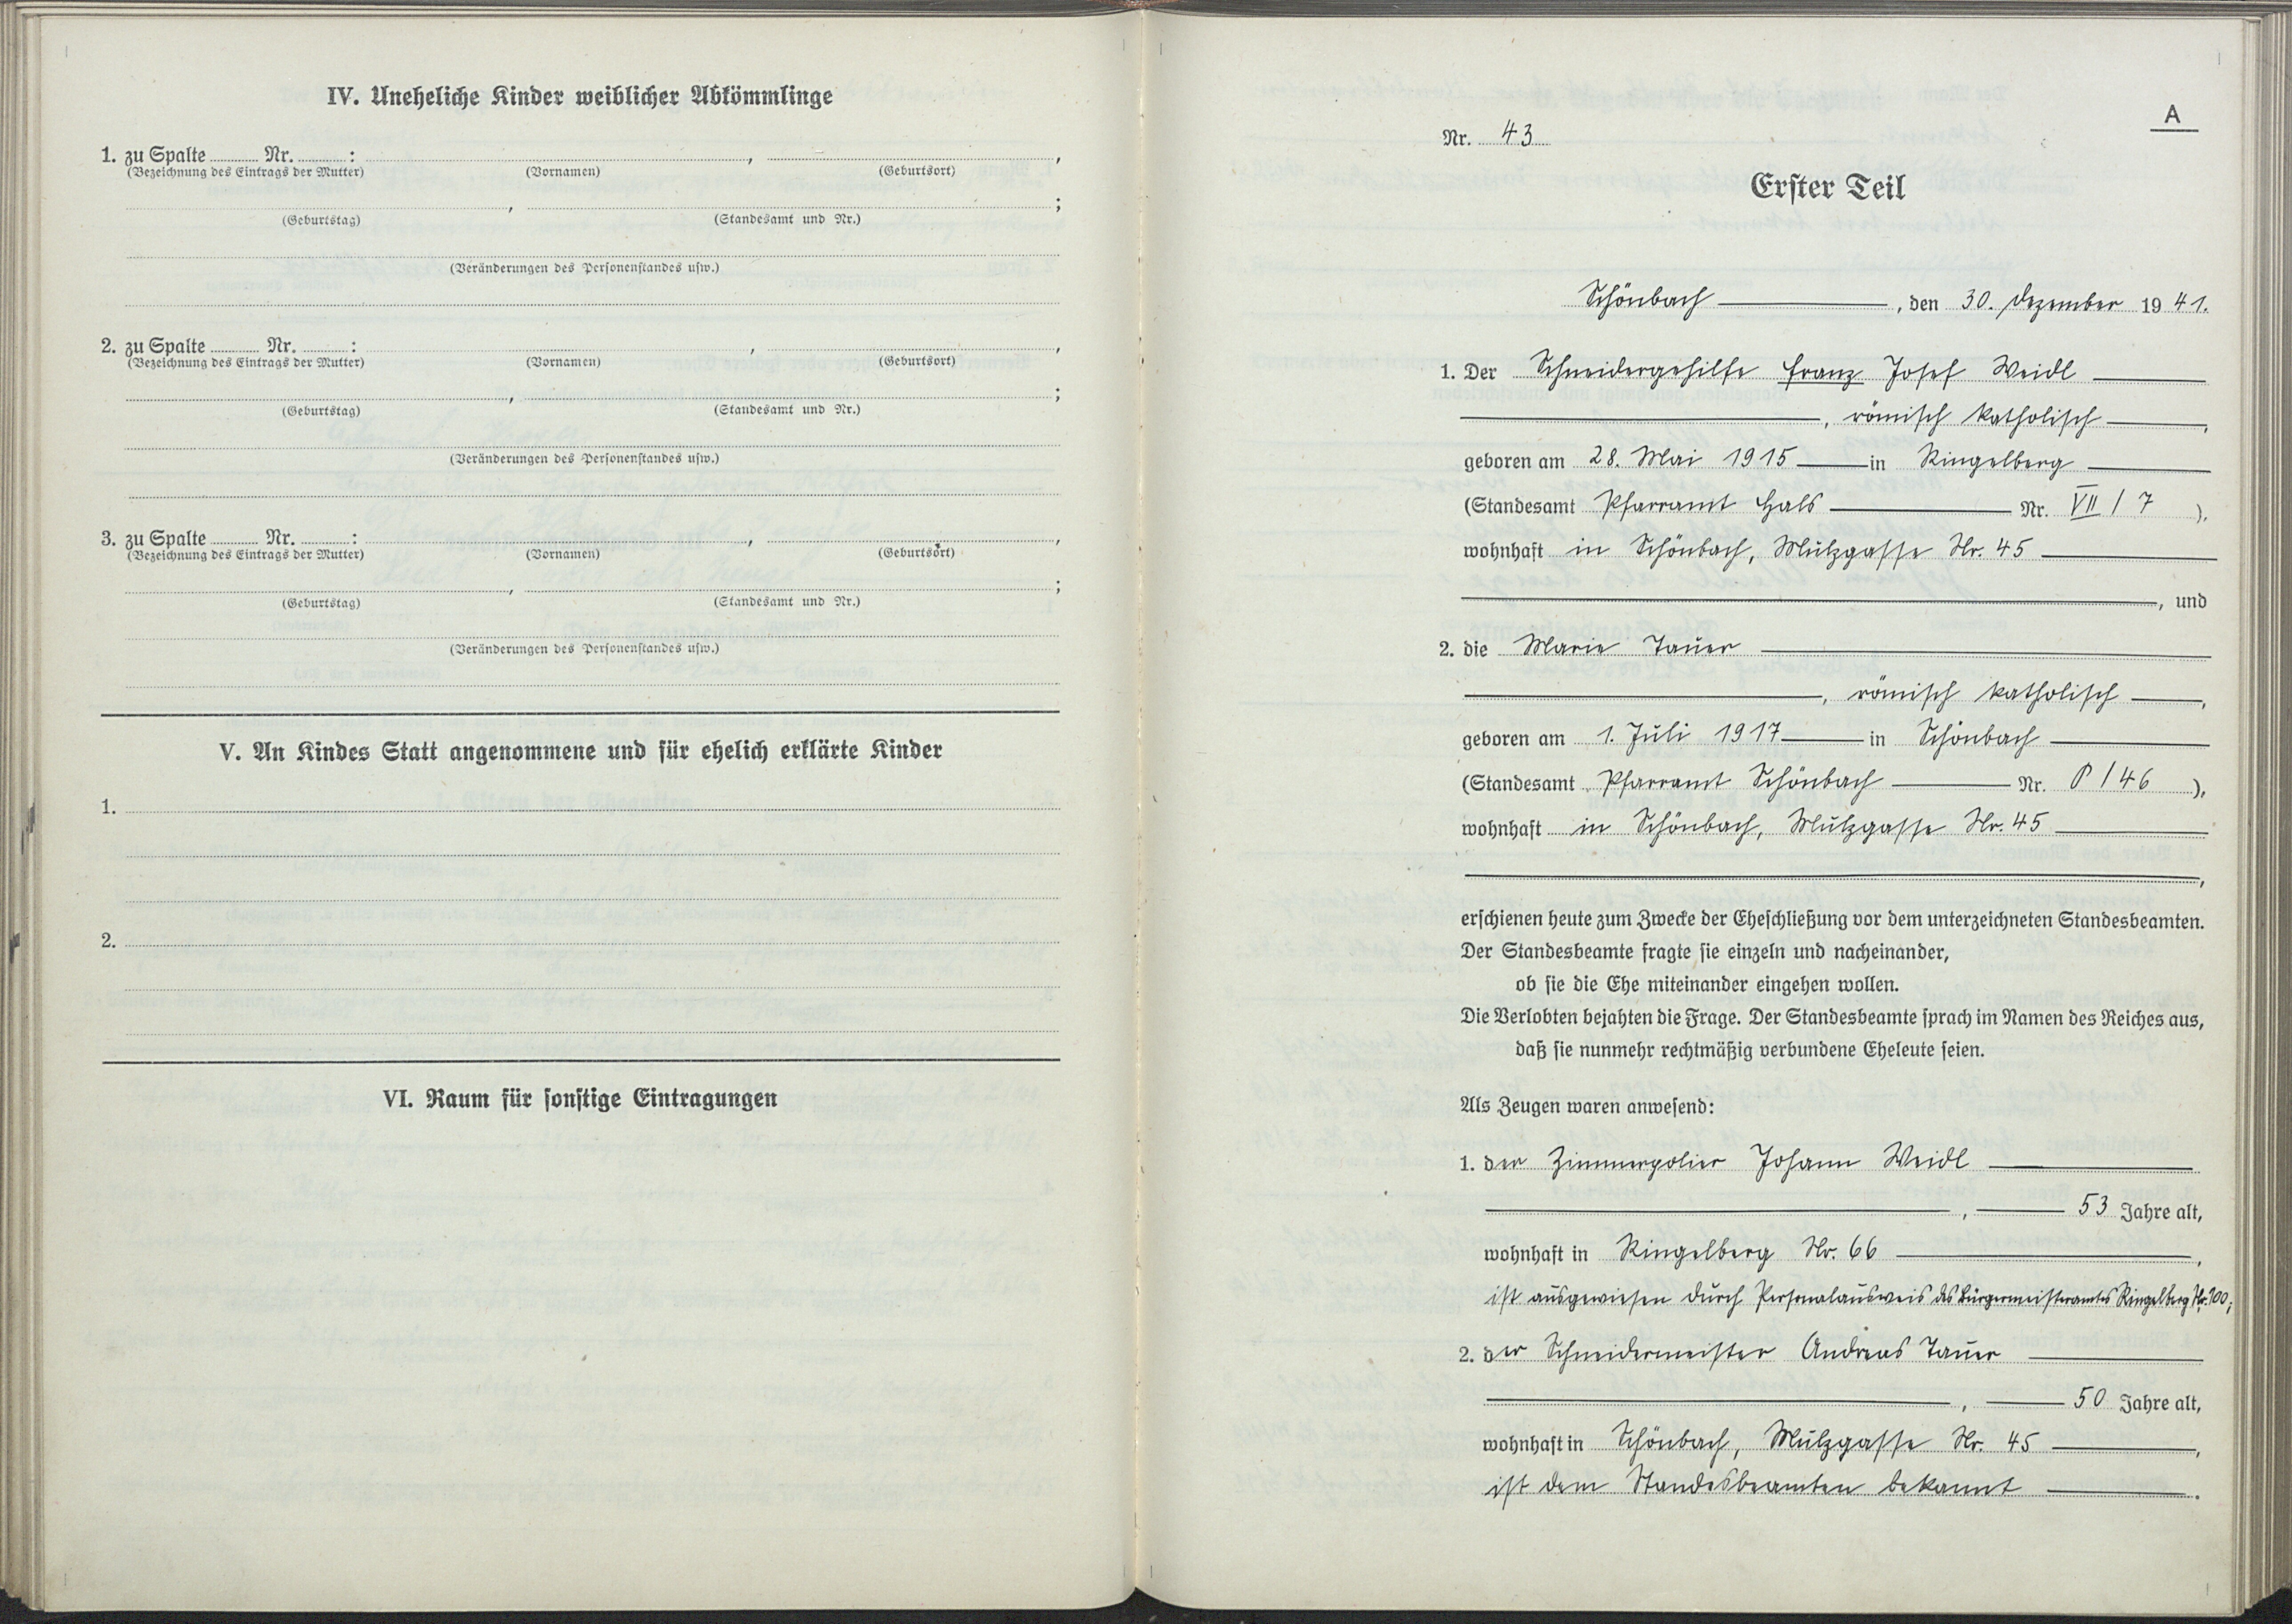 IV. Uneheliche Kinder weiblicher Abkömmlinge
1. zu Spalte Nr. : , ,
(Bezeichnung des Eintrags der Mutter) (Vornamen) (Geburtsort)
, ;
(Geburtstag) (Standesamt und Nr.)
(Veränderungen des Personenstandes usw.)
2. zu Spalte Nr. : , ,
(Bezeichnung des Eintrags der Mutter) (Vornamen) (Geburtsort)
, ;
(Geburtstag) (Standesamt und Nr.)
(Veränderungen des Personenstandes usw.)
3. zu Spalte Nr. : , ,
(Bezeichnung des Eintrags der Mutter) (Vornamen) (Geburtsort)
, ;
(Geburtstag) (Standesamt und Nr.)
(Veränderungen des Personenstandes usw.)
V. An Kindes Statt angenommene und für ehelich erklärte Kinder
1.
2.
VI. Raum für sonstige Eintragungen
A
Nr. 43
Erster Teil
Schönbach, den 30. Dezember 1941.
1. Der Schneidergehilfe Franz Josef Weidl
, römisch katholisch,
geboren am 28. Mai 1915 in Ringelberg
(Standesamt Pfarramt Hals Nr. VII / 7 ),
wohnhaft in Schönbach, Mülzgasse Nr. 45
, und
2. die Marie Tauer
, römisch katholisch,
geboren am 1. Juli 1917 in Schönbach
(Standesamt Pfarramt Schönbach Nr. P / 46 ),
wohnhaft in Schönbach, Mülzgasse Nr. 45
,
erschienen heute zum Zwecke der Eheschließung vor dem unterzeichneten Standesbeamten.
Der Standesbeamte fragte sie einzeln und nacheinander,
ob sie die Ehe miteinander eingehen wollen.
Die Verlobten bejahten die Frage. Der Standesbeamte sprach im Namen des Reiches aus,
daß sie nunmehr rechtmäßig verbundene Eheleute seien.
Als Zeugen waren anwesend:
1. der Zimmerpolier Johann Weidl
, 53 Jahre alt,
wohnhaft in Ringelberg Nr. 66,
ist ausgewiesen durch Personalausweis des Bürgermeisteramtes Ringelberg Nr. 100;
2. der Schneidermeister Andreas Tauer
, 50 Jahre alt,
wohnhaft in Schönbach, Mülzgasse Nr. 45,
ist dem Standesbeamten bekannt.